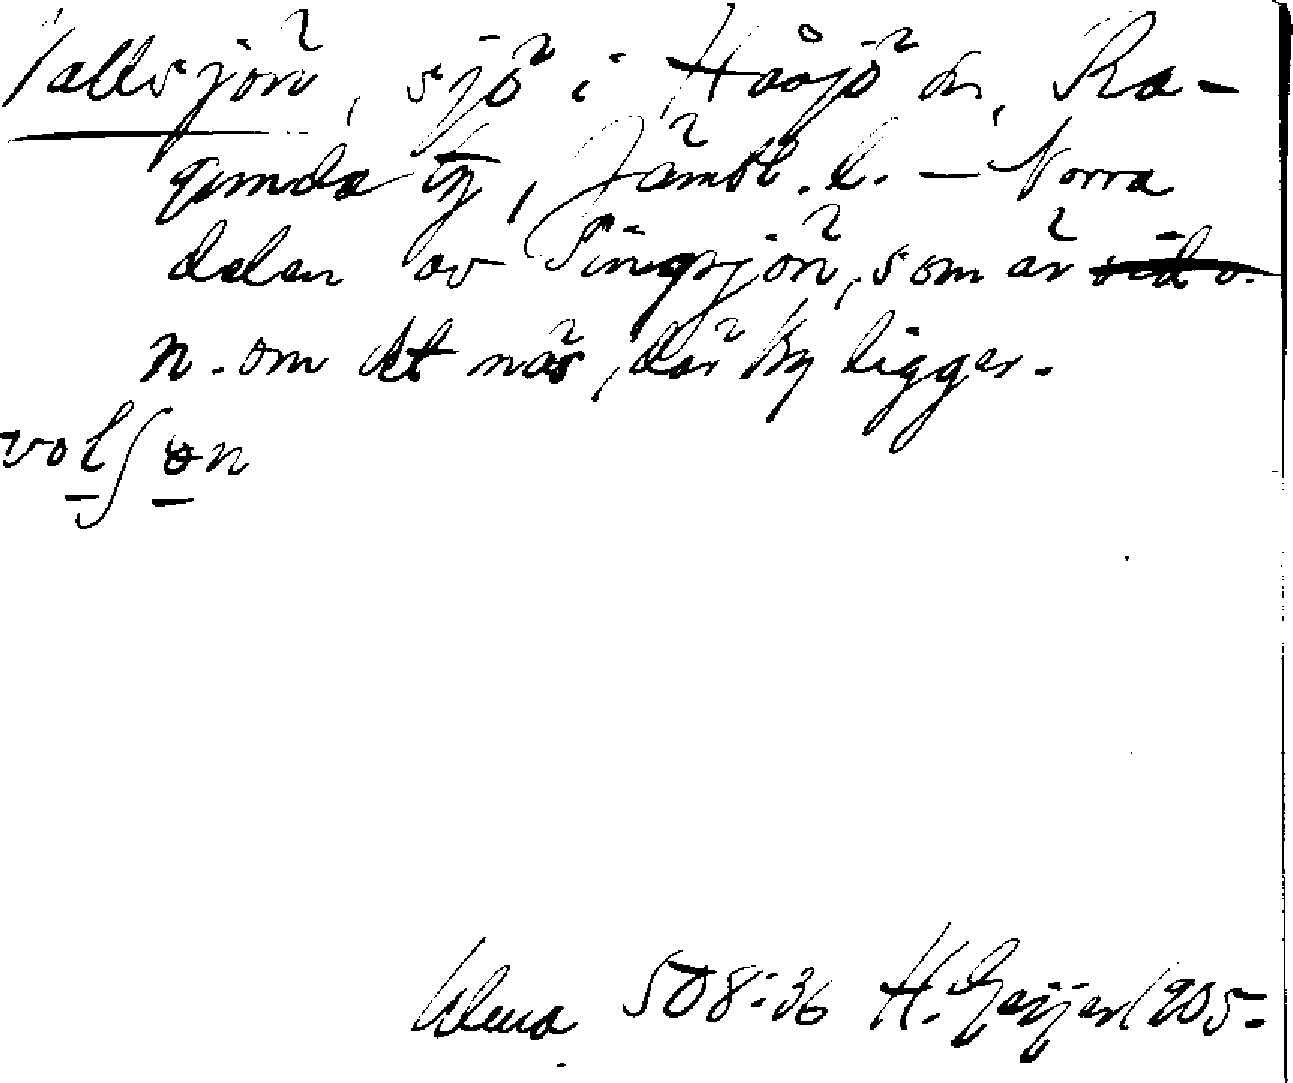 Vallsjön, sjö i Håsjö sn, Ra-
gunda tg, Jämtl. l. — Norra
delen av Singsjön, som är
n. om det näs, där by ligger.
Ulma 508:36 H. Geijer 1905-